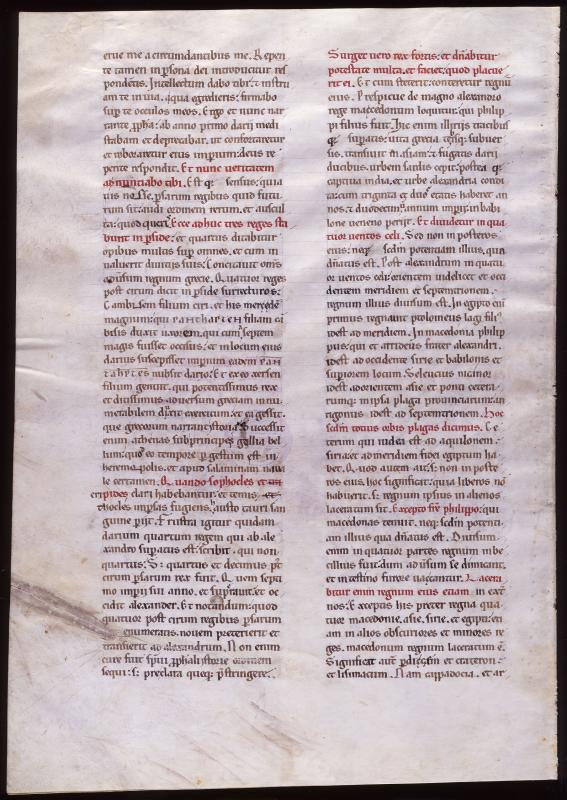 erue me a circundantibus me. Repen
te tamen in psona dei introducitur res
pondetis. Intellectum dabo tibi: et instru
am te in uia. qua egredieris: firmabo
sup te occulos meos. Ergo et nunc nar
rante ppha: ab anno primo darii medi
stabam et deprecabar. ut confortaretur
et roboraretur eius impium: deus re
pente respondit. Et nunc ueritatem
adnunciabo tibi. Est sensus: quia
uis nosse. psarum regibus quid futu
rum sit: audi ordinem rerum. et auscul
ta: quod queris. Ecce adhuc tres reges sta
bunt in pside: et quartus ditabitur
opibus multis sup omnes. et cum in
ualuerit diuitiis suis: Conciabit oms
aduisum regnum grecie. Quatuor reges
post cirum dicit in pside surrecturos:
Cambisem filium ciri. et his merede
magnum: qui pantharten filiam ca
bisis duxit uxorem. qui cum septem
magis fuisset occisus: et in locum eius
darius suscepisset impium. eadem pan
tahptes nubsit dario: Et ex eo xersen
filium genuit. qui potentissimus rex
et ditissimus. aduersum greciam innu
merabilem duxit exercitum. et ea gessit.
que grecorum narrant istorie. successit
enim athenas sub principes gallia bel
lum: quo eo tempore gestum est in
theremopolis. et apud salaminam naua
le certamen. Quando sophocles et eu
ripides clari habebantur. et temis et
thocles in psas fugiens. austo tauri san
guine piit. Frustra igitur quidam
darium quartum regem qui ab ale
xandro supatus est: scribit. qui non
quartus: s: quartus et decimus pt
cirum psarum rex fuit. Quem septi
mo impii sui anno. et supauit. et oc
cidit alexander. Et notandum: quod
quatuor post cirum regibus psarum
enumeratis. nouem preterierit et
transierit ad alexandrum. Non enim
cure fuit spui pphali istorie ordinem
sequi: s: preclara queq: pstringere.
Surget uero rex fortis: et dnabitur
potestate multa. et faciet: quod placue
rit ei. Et cum steterit: conteretur regnu
eius. Perspicue de magno alexandro
rege macedonum loquitur. qui philip
pi filius fuit. Hic enim illiriis tracibus
q: supatis: uicta grecia thebisq: subuer
sis. transiuit in asiam: et fugatis darii
ducibus. urbem sardis cepit: postea q:
captiua india. et urbe alexandria condi
ta: cum triginta et duos etatis haberet an
nos: et duodecim annum impii: in babi
lone ueneno periit. Et diuidetur in qua
tuor uentos celi. Sed non in posteros
eius: neq: scdm potentiam illius. qua
dnatus est. Post alexandrum in quatu
or uentos celi: orientem uidelicet et occi
dentem meridiem et septemtrionem.
regnum illius diuisum est. In egipto eni
primus regnauit ptolomeus lagi fili:
idest ad meridiem. In macedonia philip
pus: qui et arrideus frater alexandri.
idest ad occidente sirie et babilonis et
supiorum locum Seleucius nicanor
idest ad orientem asie et ponti cetera
rumq: in ipsa plaga prouinciarum: an
tigonus idest ad septemtrionem. Hoc
scdm totius orbis plagas dicimus. Ce
terum qui iudea est ad aquilonem.
siria: et ad meridiem fidet egiptum ha
bet. Quod autem ait: s: non in poste
ros eius. hoc significat: quia liberos non
habuerit. s: regnum ipsius in alienos
laceratum sit. Excepto fre philippo: qui
macedonas tenuit. neq: scdm potenti
am illius qua dnatus est. Diuisum
enim in quatuor partes regnum imbe
cillius fuit: dum ad uisum se dimicant.
et intestino furore uastantur. Lacera
bitur enim regnum eius etiam in exter
nos: Exceptis his preter regna qua
tuor macedonie. asie. sirie. et egipti: eti
am in alios obscuriores et minores re
ges. macedonum regnum laceratum est.
Significat aut pdicam et crateron:
et lisimacum. Nam cappadocia. et ar